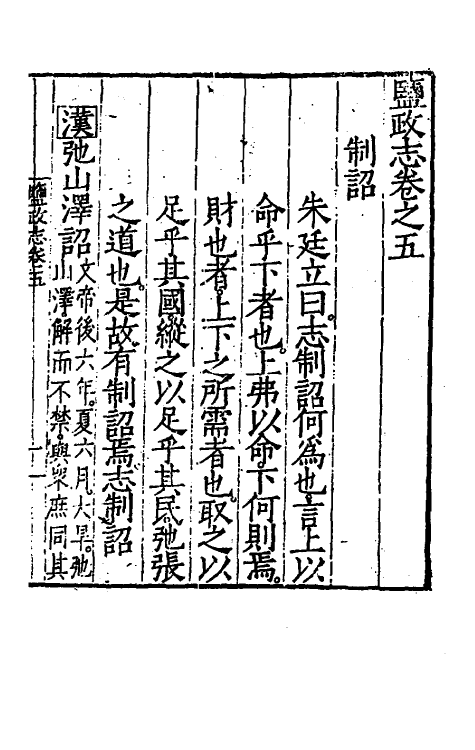 鹽政志卷之五
制詔
朱廷立曰志制詔何爲也言上以
命乎下者也上弗以命下何則焉
財也者上下之所需者也取之以
足乎其國縱之以足乎其民弛張
之道也是故有制詔焉志制詔
漢弛山澤詔文帝後六年夏六月大旱弛
山澤解而不禁與衆庶同其
鹽政志卷五
一